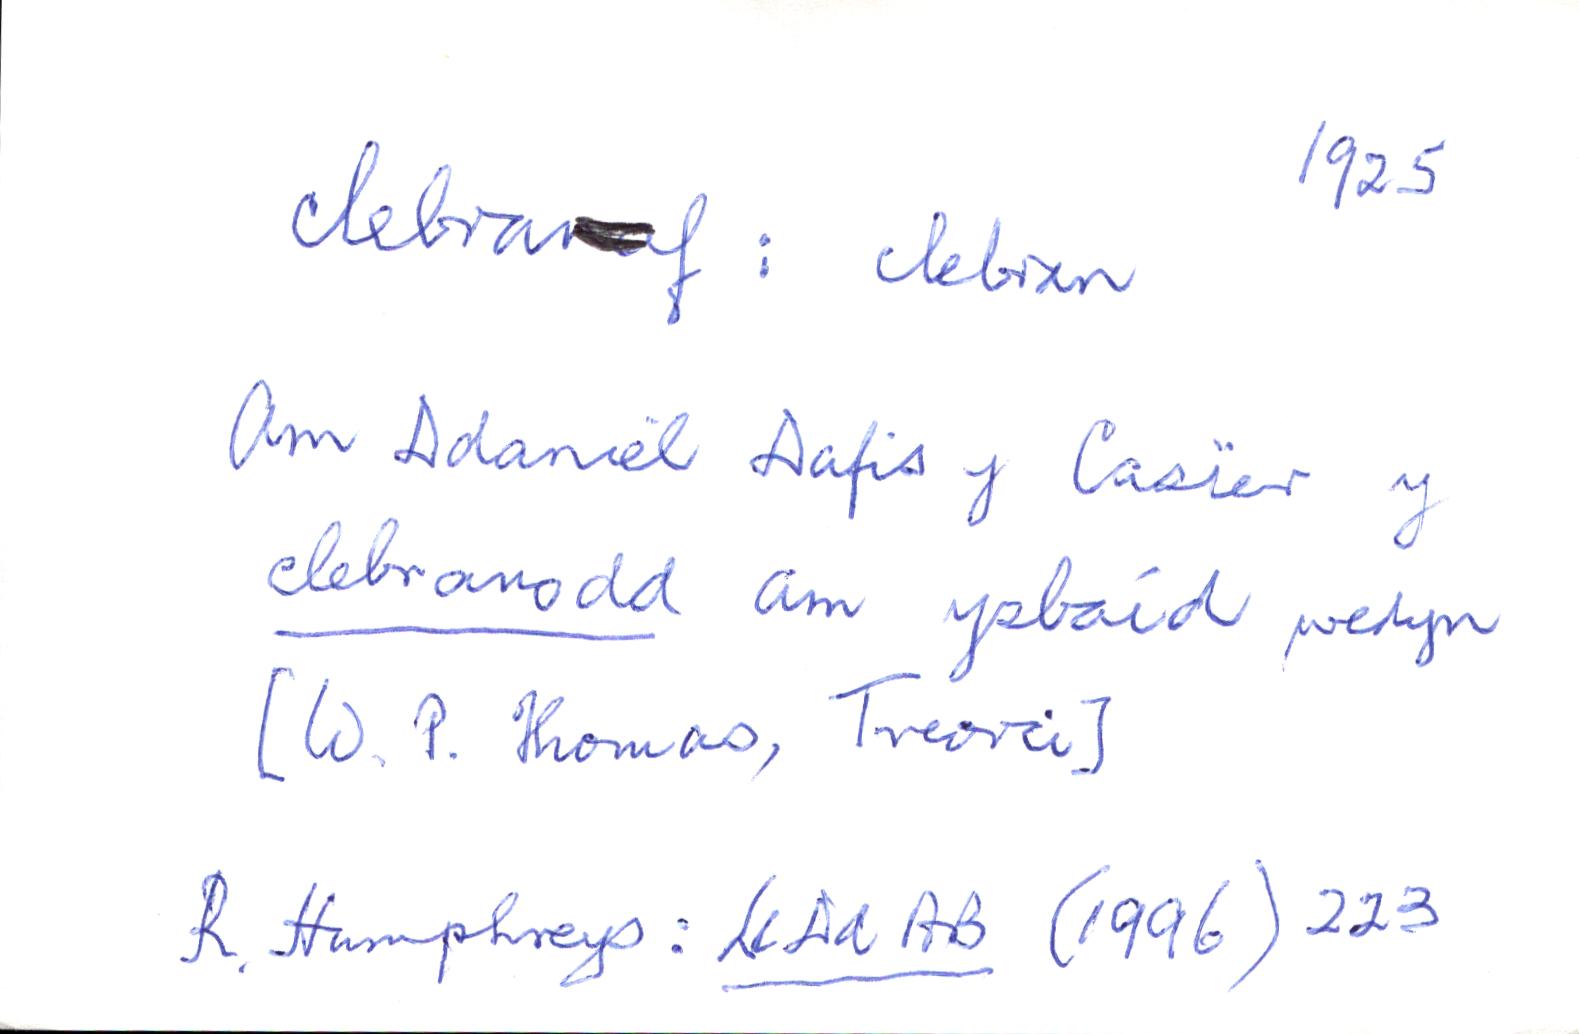 1925
clebranaf : clebran
Am Ddaniël Dafis y Casïer y
clebranodd am ysbaid wedyn
[W. P. Thomas, Treorci]
R. Humphreys: Ll Dd AB (1996) 223